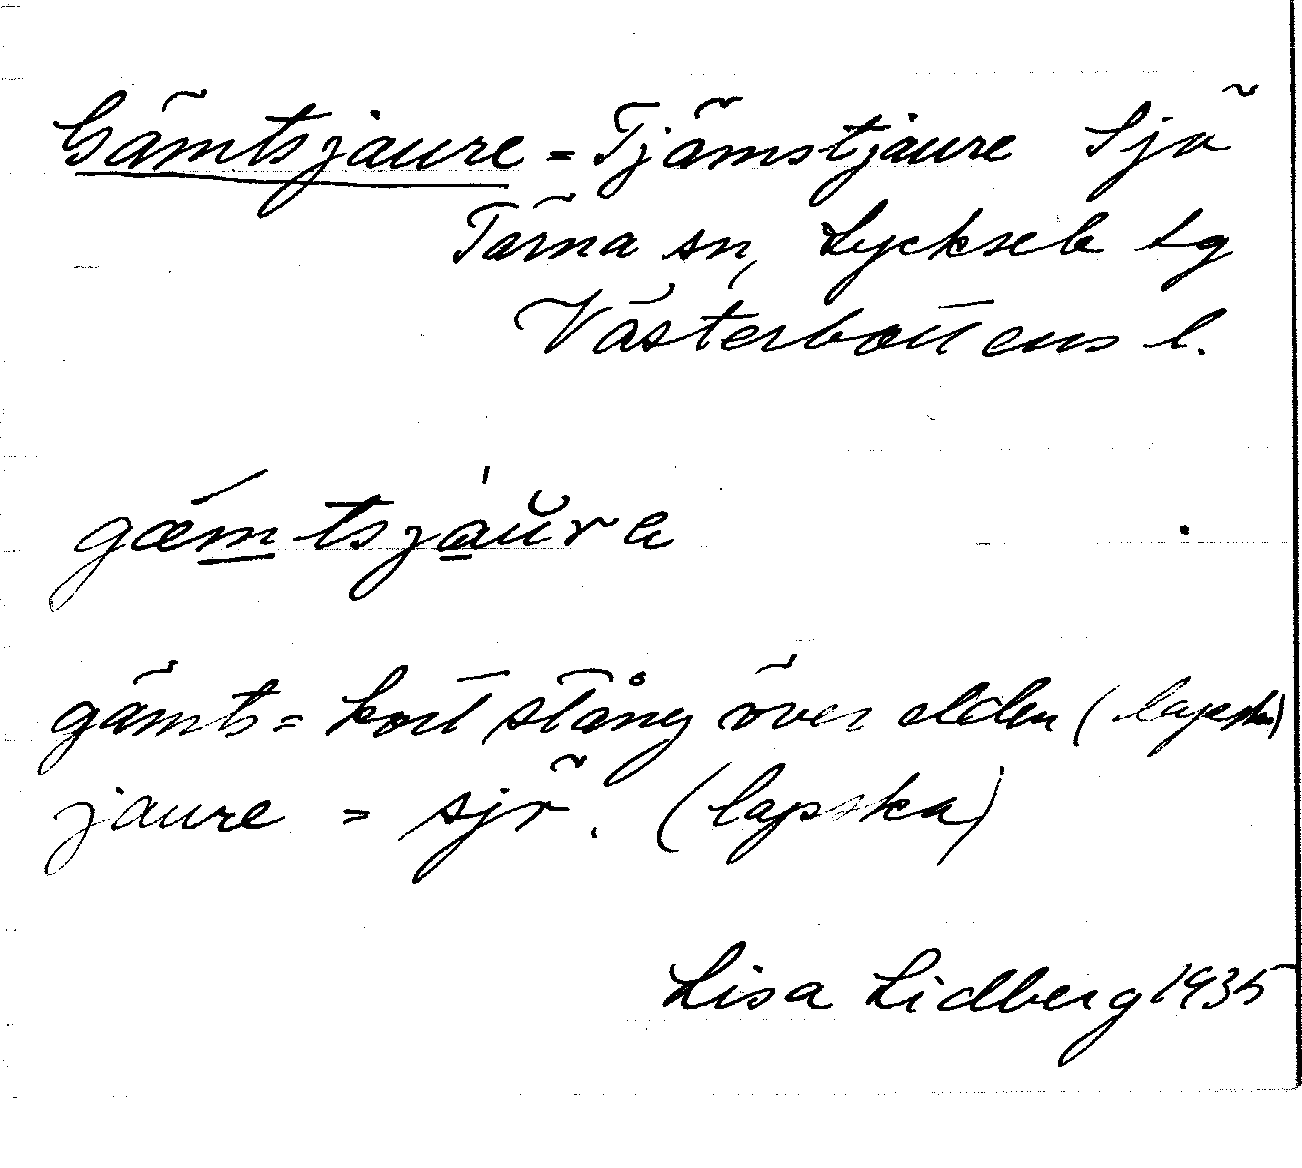 Gämtsjaure = Tjämstjaure Sjö
Tärna sn, Lycksele lg
Västerbottens l.
gǽmtsjáŭra
gämts = kort stång över elden (lapska)
jaure = sjö. (lapska)
Lisa Lidberg 1935